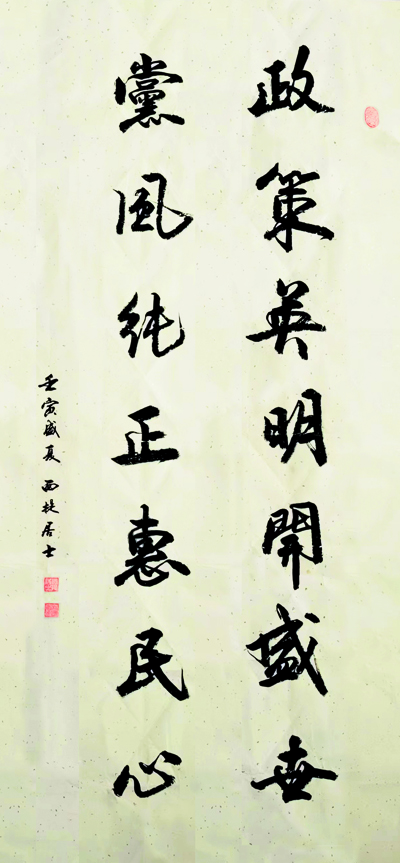 政策英明開盛世
黨風純正惠民心
壬寅盛夏 西堤居士